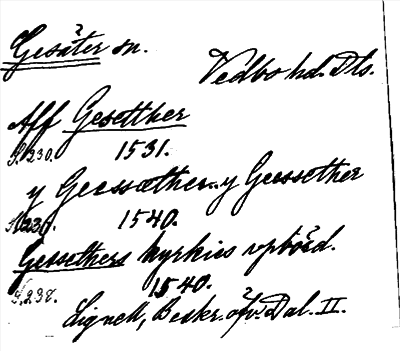 Gesäter sn.
Vedbo hd. Dls.
Aff Gesetther
S. 230. 1531.
y Geessæther. y Geessether
S. 230. 1540.
Gessethers kyrkies vpbörd.
S. 238. 1540.
Lignell, Beskr. öfv. Dal. II.